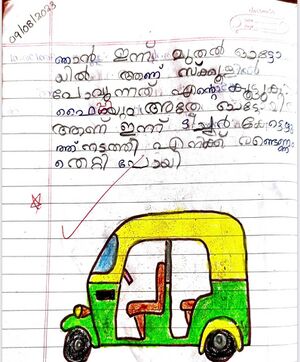 09/08/2023
ഞാൻ ഇന്ന് മുതൽ ഓട്ടോ
യിൽ ആണ് സ്കൂളിൽ
പോവുന്നത് എന്റെ കൂട്ടുകാ
അതേ
ആണ് ഇന്ന് ടീച്ചർ കേട്ടെഴു
ത്ത് നടത്തി എനിക്ക് രണ്ടെണ്ണം
തെറ്റി പോയി